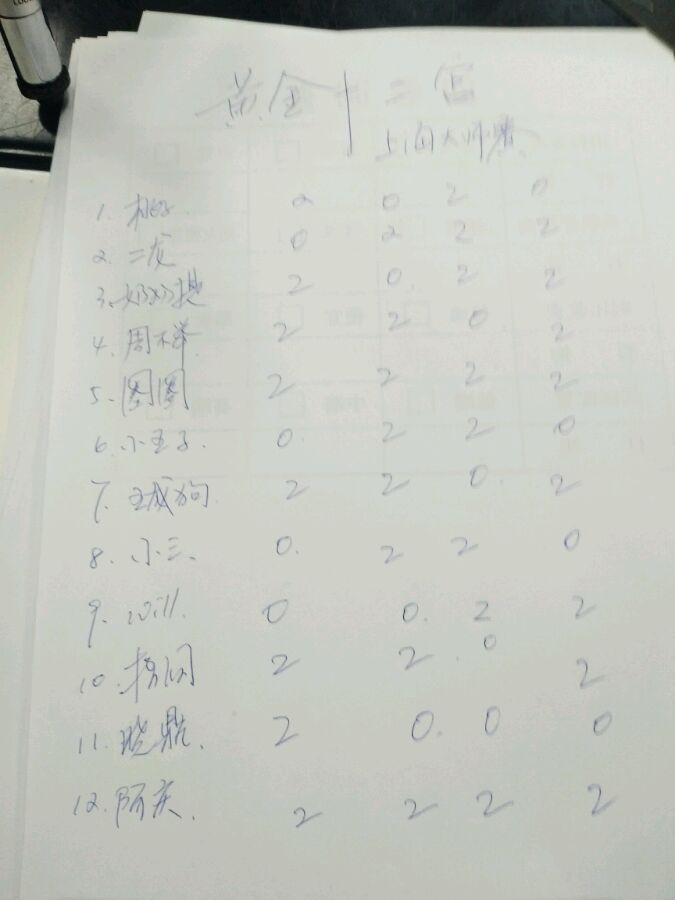 黄金十二宫
上海大师赛
1. 2 0 2 0
2. 二龙 0 2 2 2
3. 奶奶提 2 0. 2 2
4. 周不举. 2 2 0. 2
5. 圈圈 2 2 2 2
6. 小王子. 0. 2 2 0
7. 王成狗. 2 2 0. 2
8. 小三. 0. 2 2 0
9. Will. 0 0. 2 2
10. 2 2. 0 2
11. 晓鹏. 2 0. 0 0
12. 阿庆. 2 2 2 2